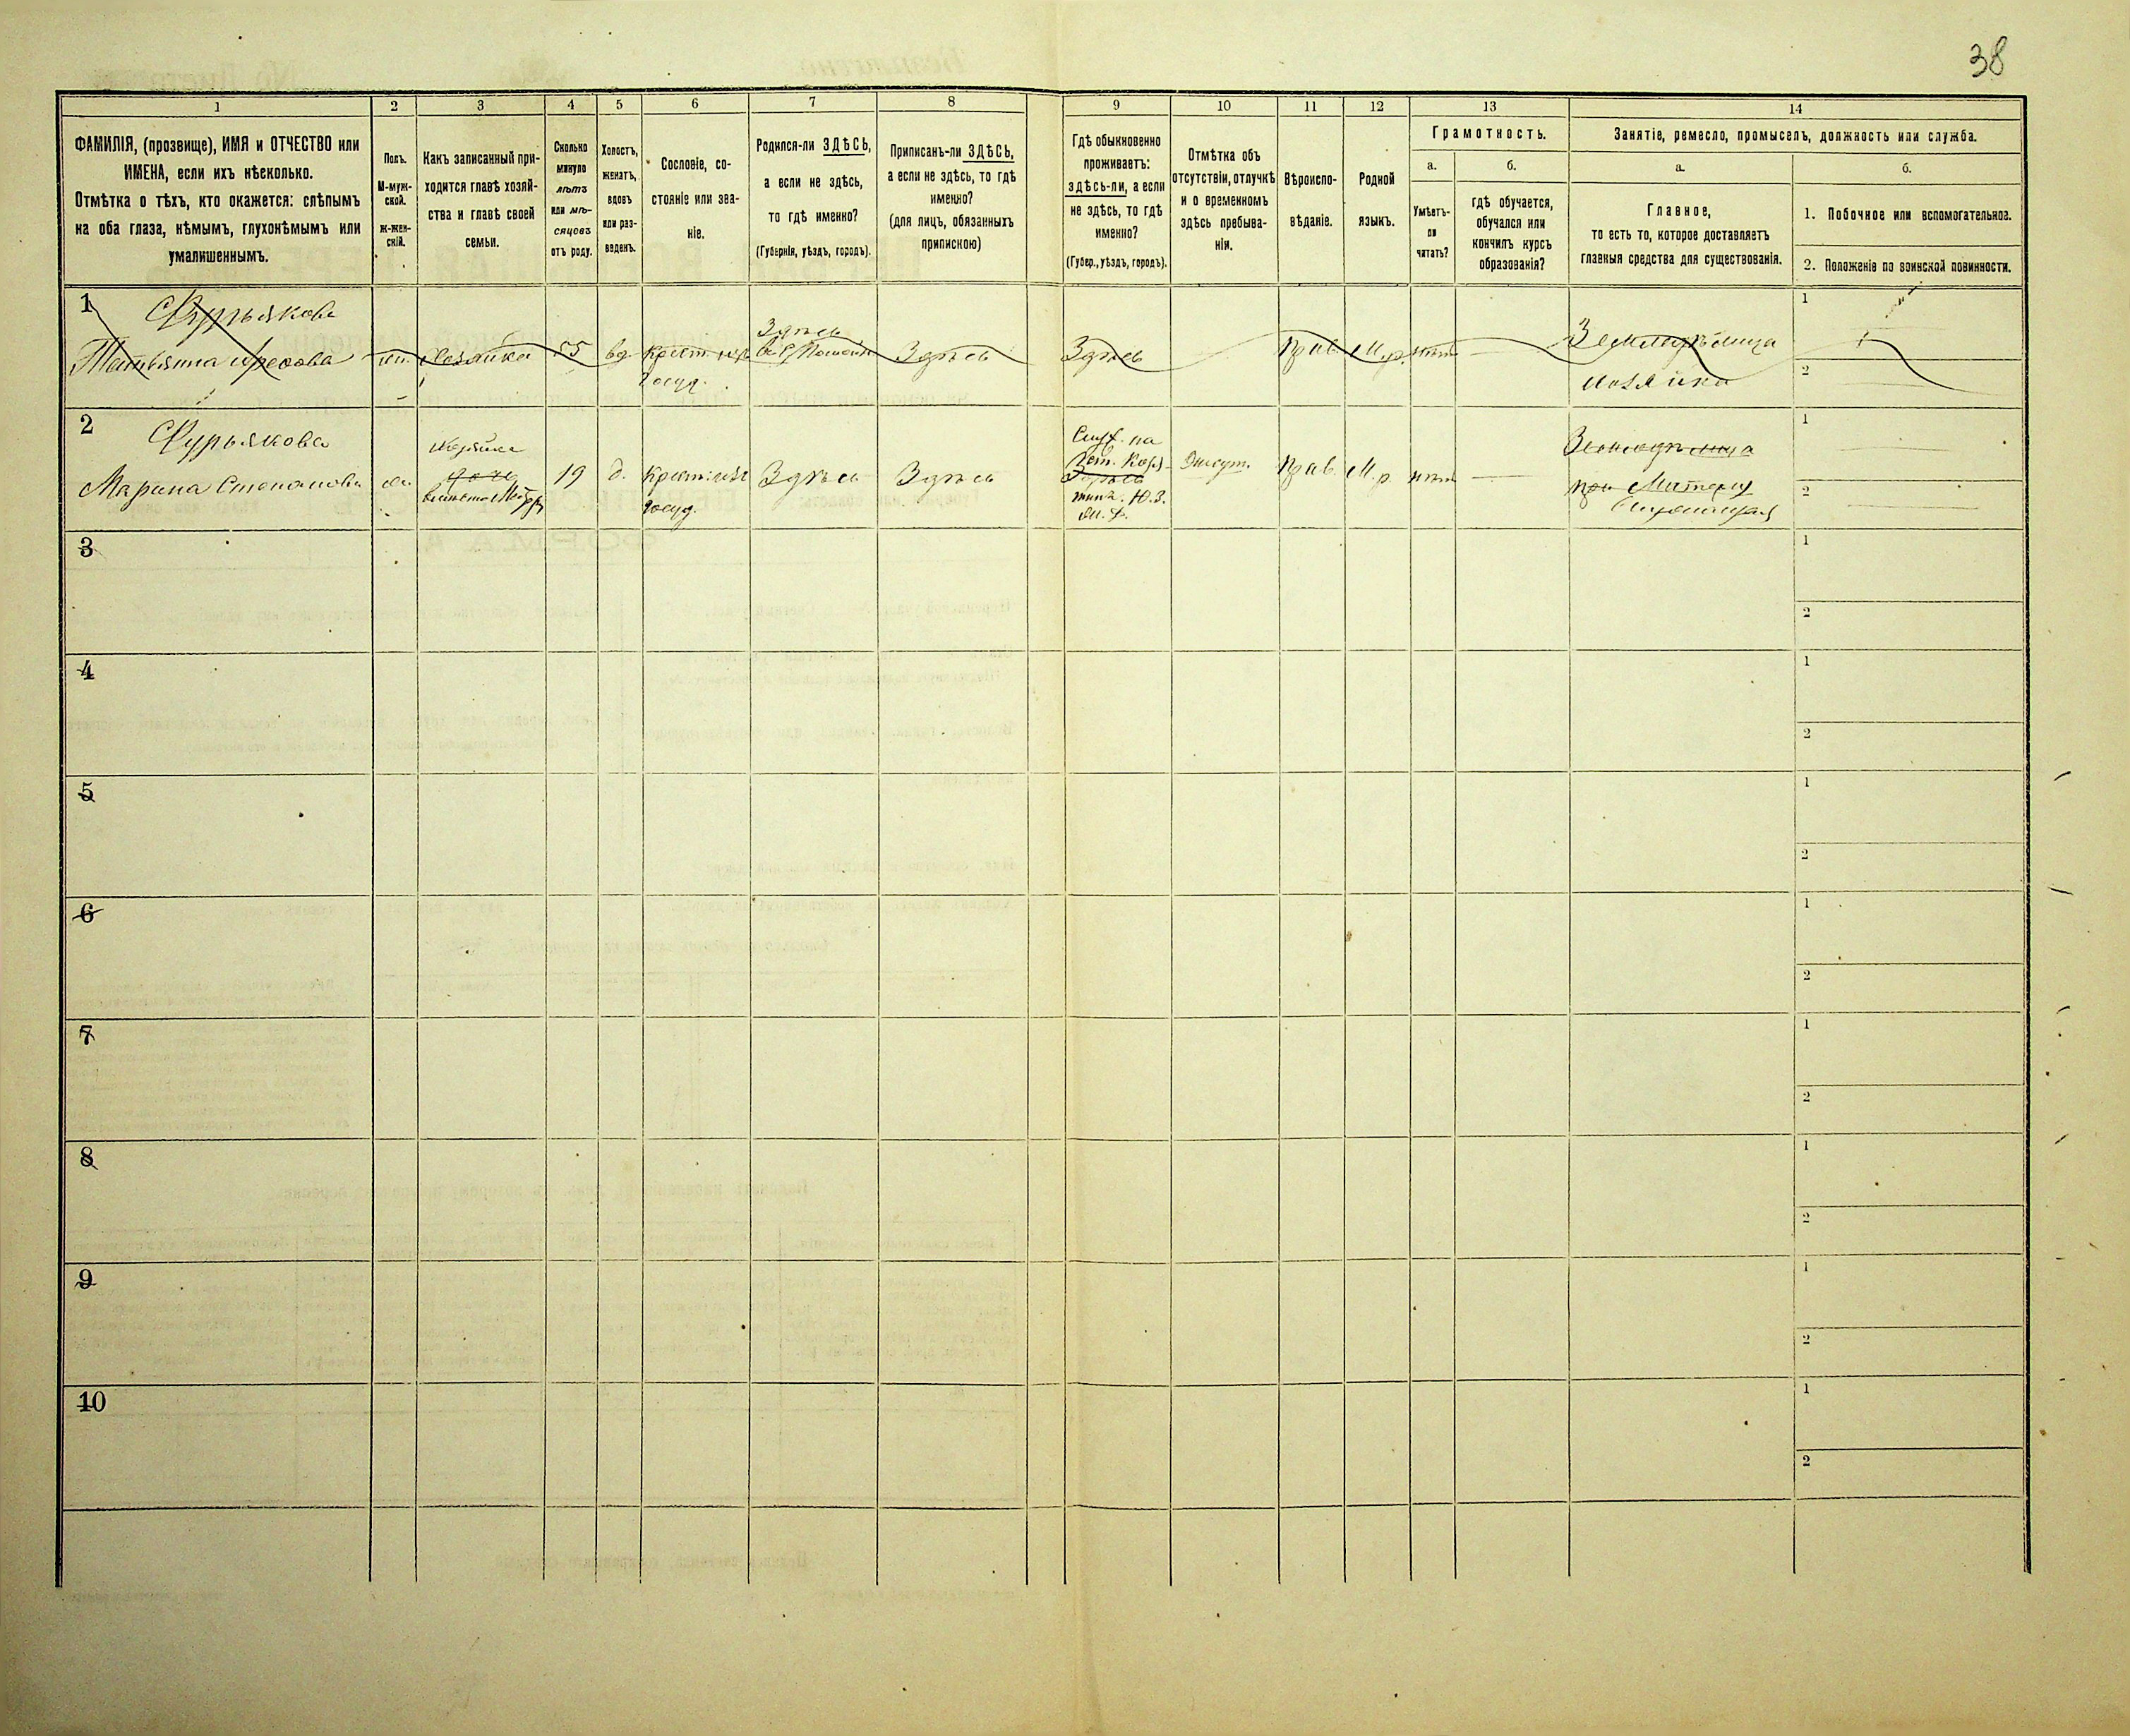 38
1
2
3
4
5
6
7
8
9
10
11
12
13
14
ФАМИЛІЯ, (прозвище), ИМЯ и ОТЧЕСТВО или
ИМЕНА, если ихъ нѣсколько.
Отмѣтка о тѣхъ, кто окажется: слѣпымъ
на оба глаза, нѣмымъ, глухонѣмымъ или
умалишеннымъ.
Полъ.
М-муж-
ской.
Ж-жен-
скій.
Какъ записанный при-
ходится главѣ хозяй-
ства и главѣ своей
семьи.
Сколько
минуло
лѣтъ
или мѣ-
сяцовъ
отъ роду.
Холостъ,
женатъ,
вдовъ
или раз-
веденъ.
Сословіе, со-
стояніе или зва-
ніе.
Родился-ли ЗДѢСЬ,
а если не здѣсь,
то гдѣ именно?
(Губернія, уѣздъ, городъ).
Приписанъ-ли ЗДѢСЬ,
а если не здѣсь, то гдѣ
именно?
(для лицъ, обязанныхъ
припискою)
Гдѣ обыкновенно
проживаетъ:
здѣсь-ли, а если
не здѣсь, то гдѣ
именно?
(Губер., уѣздъ, городъ).
Отмѣтка объ
отсутствіи, отлучкѣ
и о временномъ
здѣсь пребыва-
ніи.
Вѣроиспо-
вѣданіе.
Родной
языкъ.
Грамотность.
а.
Умѣетъ-
ли
читать?
б.
гдѣ обучается,
обучался или
кончилъ курсъ
образованія?
Занятіе, ремесло, промыселъ, должность или служба.
а.
Главное,
то есть то, которое доставляетъ
главныя средства для существованія.
б.
1. Побочное или вспомогательное.
2. Положеніе по воинской повинности.
1
Фурьякова
Татьяна
хозяйка
55
вд.
крест. изъ
госуд.
Здѣсь
Здѣсь
Здѣсь
Прав.
М.р.
нѣтъ
Земледѣлица
хозяйка
1
2
2
Фурьякова
Марина Степановна
хозяйка
дочь
19
д.
крест. изъ
госуд.
Здѣсь
Здѣсь
на
Здѣсь
Ю.З.
ж.д.
Отсут.
Прав.
М.р.
нѣтъ
Земледѣлица
при Матери
1
2
3
1
2
4
1
2
5
1
2
6
1
2
7
1
2
8
1
2
9
1
2
10
1
2